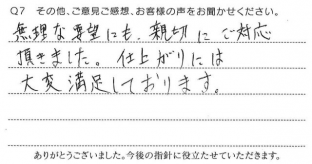 Q7 その他、ご意見ご感想、お客様の声をお聞かせください。
無理な要望にも、親切にご対応
頂きました。仕上がりには
大変満足しております。
ありがとうございました。今後の指針に役立たせていただきます。